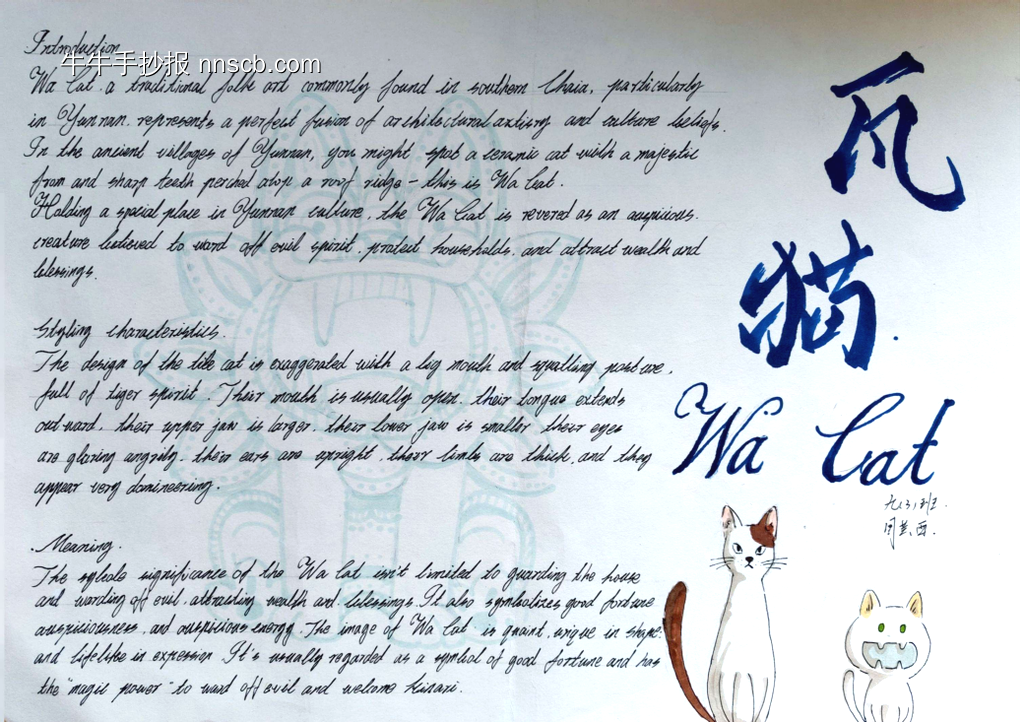 Introduction
牛牛手抄报 nnscb.com
Wa Cat, a traditional folk art commonly found in southern Chaia, particularly
in Yunnan, represents a perfect fusion of architectural artistry and culture beliefs.
In the ancient villages of Yunnan, you might spot a ceramic cat with a majestic
from and sharp teeth perched atop a roof ridge - this is Wa Cat.
Holding a special place in Yunnan culture, the Wa Cat is revered as an auspicious.
creature believed to ward off evil spirit, protect households, and attract wealth and
blessings.
Styling characteristics.
The design of the tile cat is exaggerated with a big mouth and squatting posture,
full of tiger spirit. Their mouth is usually open, their tongue extends
outward, their upper jaw is larger, their lower jaw is smaller their eyes
are glaring angrily, their ears are upright, their limbs are thick, and they
appear very domineering.
.Meaning.
The significance of the Wa Cat isn't limited to guarding the house
and warding off evil, attracting wealth and blessings. It also symbolizes good fortune
auspiciousness, and auspicious energy. The image of Wa Cat is quaint, unique in shape,
and lifelike in expression. It's usually regarded as a symbol of good fortune and has
the "magic power" to ward off evil and welcome
瓦
猫
Wa Cat
九(3)班.